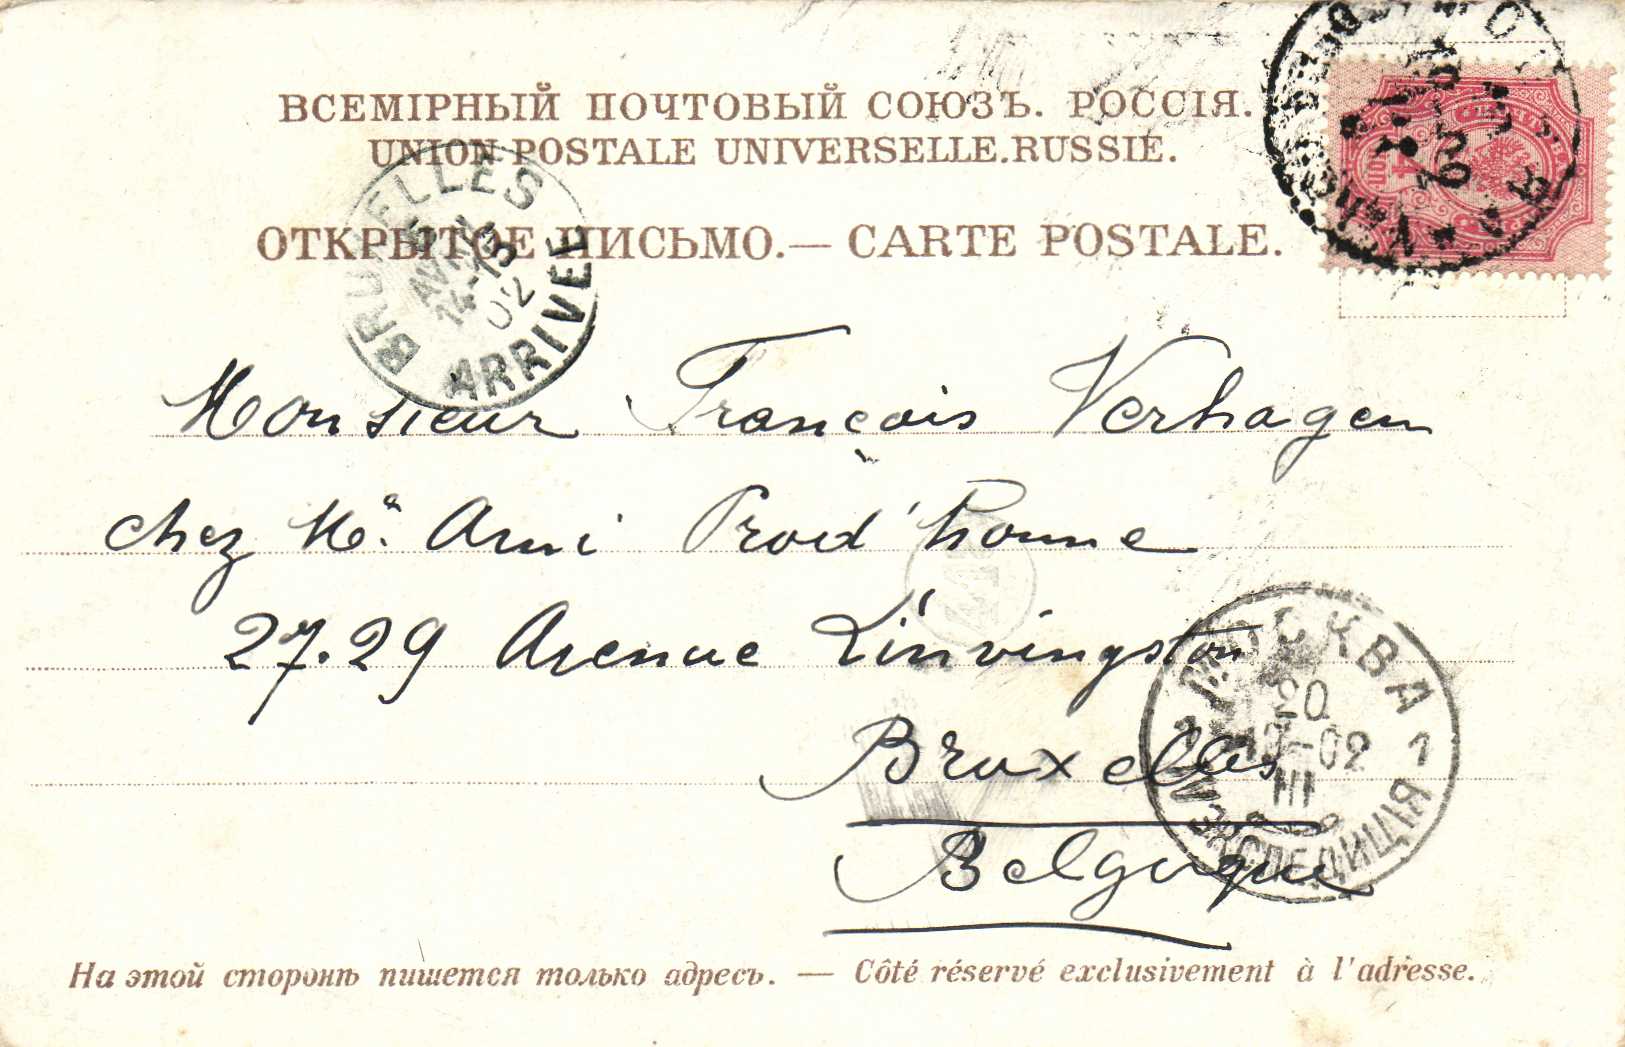 ВСЕМІРНЫЙ ПОЧТОВЫЙ СОЮЗЪ. РОССІЯ.
UNION POSTALE UNIVERSELLE. RUSSIE.
ОТКРЫТОЕ ПИСЬМО. — CARTE POSTALE.
4 КОП
BRUXELLES
14-15
02
ARRIVEE
Monsieur François Verhagen
chez Mr. Ami Prod'homme
27.29 Avenue Linvingston
Bruxelles
Belgique
МОСКВА
20
-02
III
1
ЭКСПЕДИЦІЯ
На этой сторонѣ пишется только адресъ. — Côté réservé exclusivement à l'adresse.